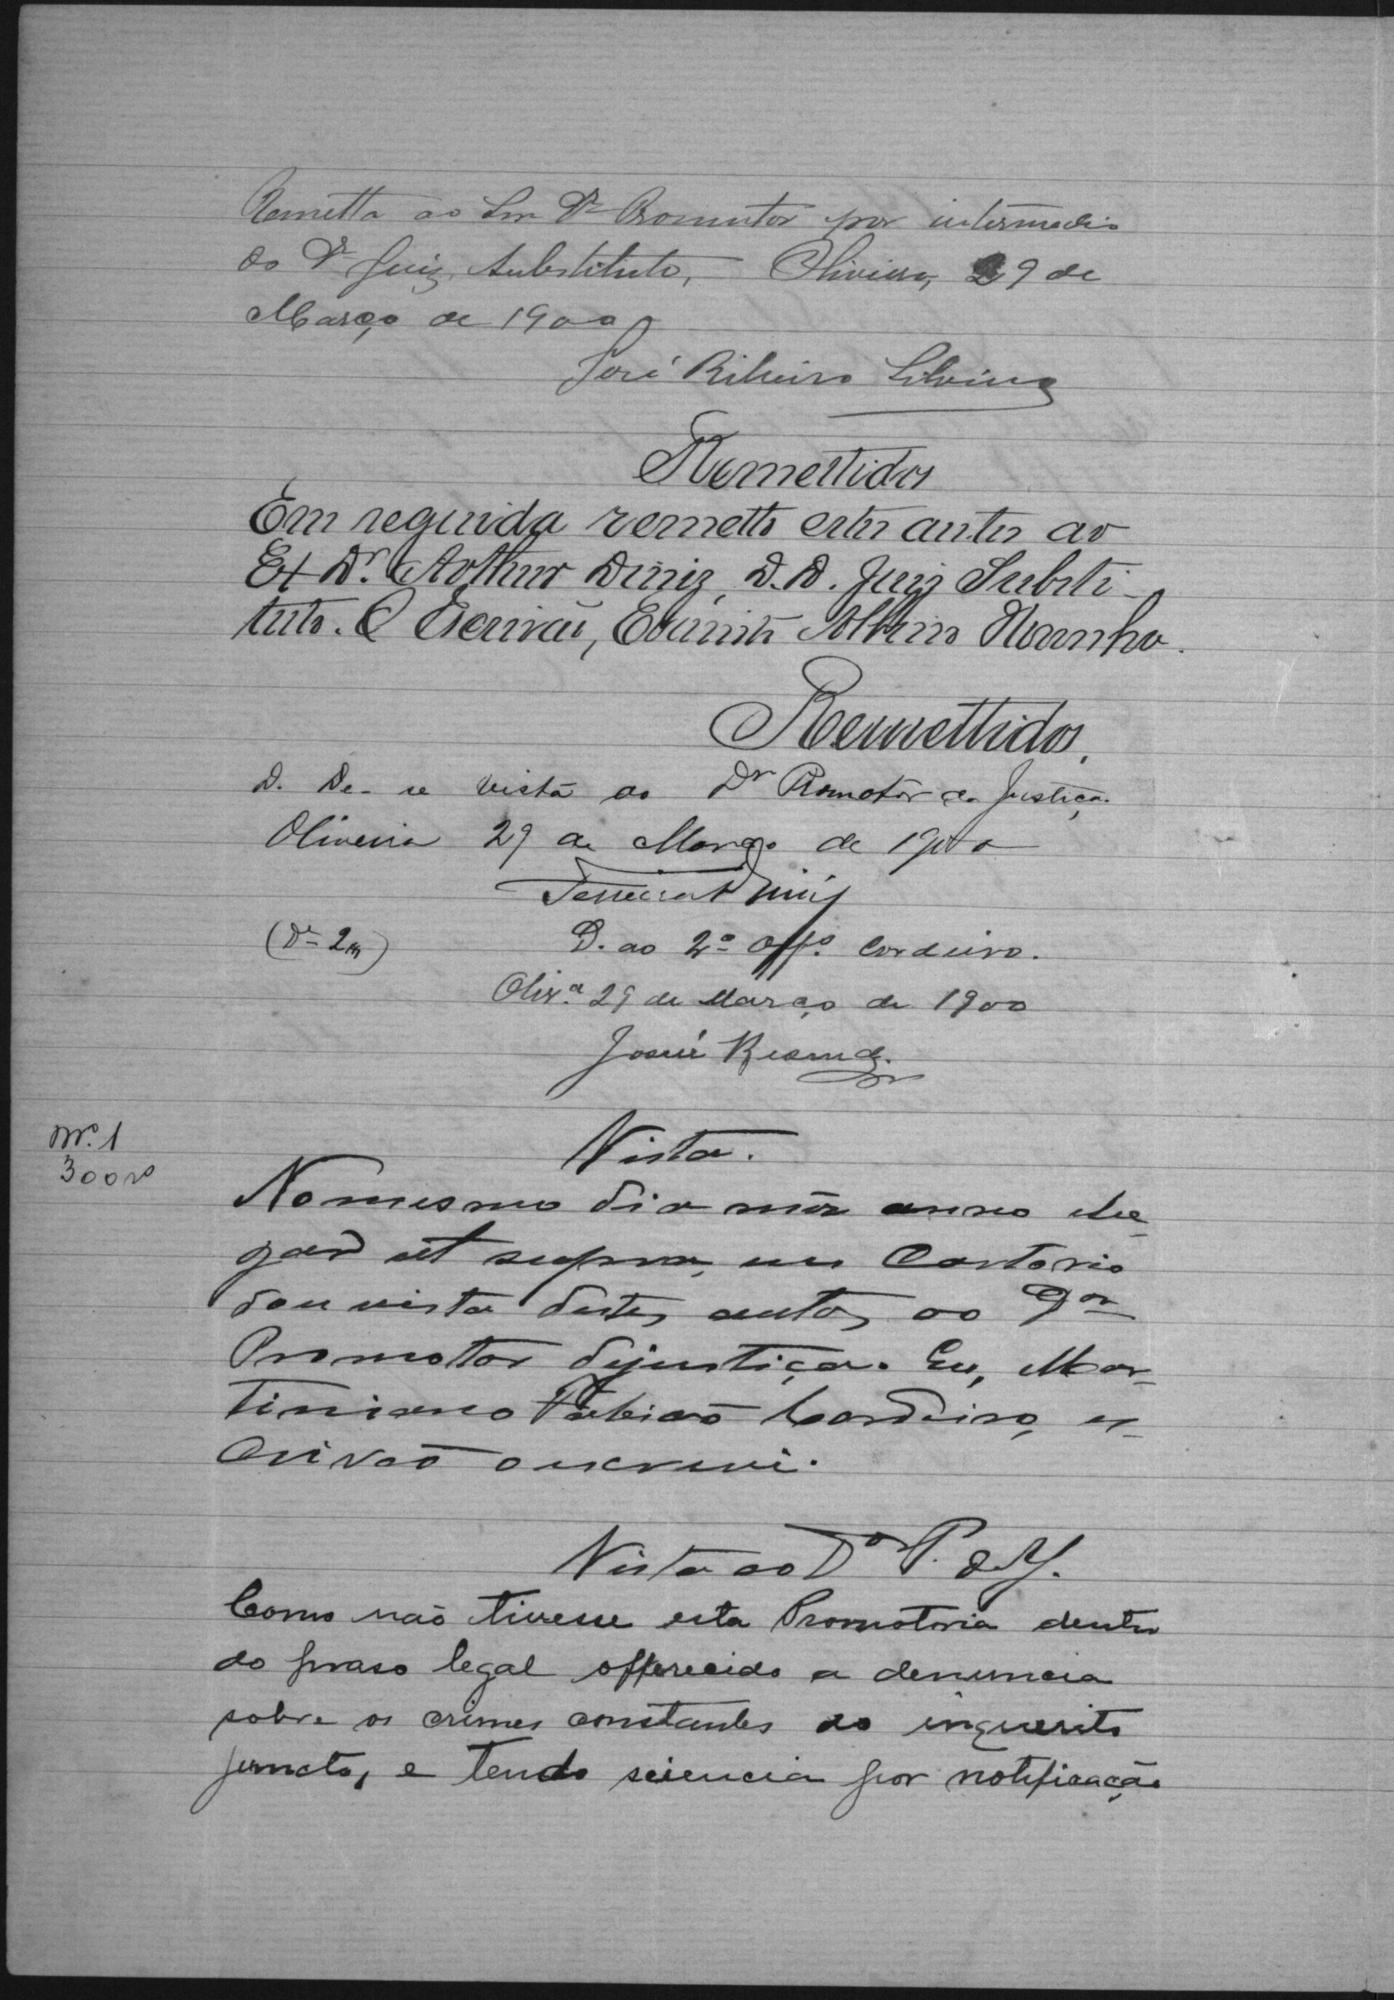 Remetta ao Snr Dr Promotor por intermedio
do Dr Juiz Substituto, Oliveira, 29 de
Março de 1900
José Ribeiro Silvino
Remettidos
Em seguida remetto estes autos ao
Ex Dr. Arthur Diniz, D.D. Juiz Substi-
tuto. O Escrivão, Albino Noronha.
Remettidos,
D. De-se vista ao Dr Promotor da Justiça.
Oliveira 29 de Março de 1900
Diniz
D. ao 2º Offº. Cordeiro.
Olivª 29 de Março de 1900
Josué
Nº. 1
300rs
Vista.
No mesmo dia mez anno lu-
gar ut supra, em Cartorio
dou vista destes autos ao Dor
Promotor dejustiça. Eu, Mar-
tiniano Fabião Cordeiro, es-
crivão o escrevi.
Vista ao Dor P. de J.
Como não tivesse esta Promotoria dentro
do praso legal offerecido a denuncia
sobre os crimes constantes do inquerito
juncto, e tendo sciencia por notificação